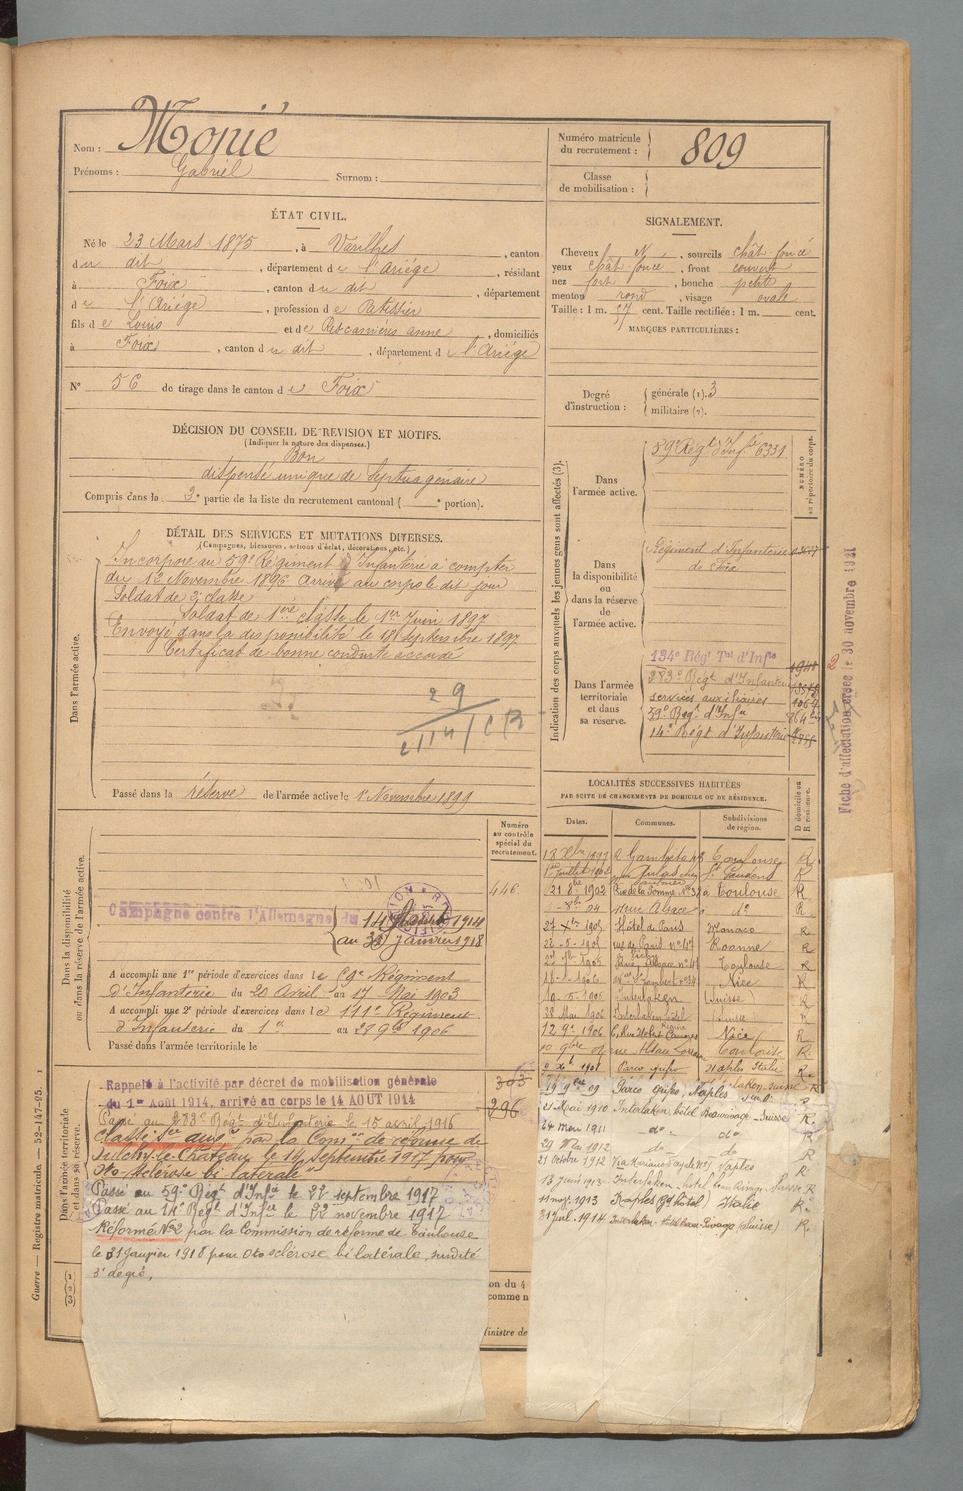 Nom : Monié
Prénoms : Gabriel Surnom :
Numéro matricule du recrutement : 809
Classe de mobilisation :
ÉTAT CIVIL.
Né le 23 Mars 1875, à Varilhes, canton
du dit, département de l'Ariége, résidant
à Foix, canton du dit, département
de l'Ariége, profession de Patissier
fils de Louis et de anne, domiciliés
à Foix, canton du dit, département de l'Ariége
N° 56 de tirage dans le canton de Foix
SIGNALEMENT.
Cheveux N, sourcils chât. foncé
yeux chât. foncé, front couvert
nez fort, bouche petite
menton rond, visage ovale
Taille : 1 m. 57 cent. Taille rectifiée : 1 m. cent.
MARQUES PARTICULIÈRES :
Degré d'instruction : générale (1). 3
militaire (2).
DÉCISION DU CONSEIL DE REVISION ET MOTIFS.
(Indiquer la nature des dispenses.)
Bon
dispensé unique de septuagénaire
Compris dans la 3e partie de la liste du recrutement cantonal ( e portion).
DÉTAIL DES SERVICES ET MUTATIONS DIVERSES.
(Campagnes, blessures, actions d'éclat, décorations, etc.)
Dans l'armée active.
Incorporé au 59e Régiment d'Infanterie à compter
du 12 Novembre 1896 Arrivé au corps le dit jour
Soldat de 2e classe
Soldat de 1ère classe le 1er Juin 1897
Envoyé dans la disponibilité le 18 Septembre 1897
Certificat de bonne conduite accordé
29
Passé dans la réserve de l'armée active le 1er Novembre 1899
Indication des corps auxquels les jeunes gens sont affectés (3).
NUMÉRO au répertoire du corps.
Dans l'armée active.
59e Régt d'Infie 6331
Dans la disponibilité ou dans la réserve de l'armée active.
Régiment d'Infanterie
de Foix
Dans l'armée territoriale et dans sa réserve.
134e Régt Tal d'Infie
283e Régt d'Infanterie
services auxiliaires
59e Régt d'Infie
14e Régt d'Infanterie
Fiche d'affectation créée le 30 novembre 1921
LOCALITÉS SUCCESSIVES HABITÉES
PAR SUITE DE CHANGEMENTS DE DOMICILE OU DE RÉSIDENCE.
D domicile ou R résidence.
Dates. Communes. Subdivisions de région.
Toulouse R
St Gaudens R
Rue de la Pomme à Toulouse R
rue Alsace do R
1905 Hôtel de Paris Monaco R
rue de Paris n° 47 Roanne R
Toulouse R
1906 Nice R
1906 Interlaken (Suisse) R
28 Mai 1906 Interlaken hôtel (Suisse) R
12 9e 1906 Nice R
rue Alsace Lorraine Toulouse R.
Parco Naples Italie R.
1909 Parco Naples R
21 Mai 1910 Interlaken, hôtel Beaurivage - Suisse R.
24 mai 1911 do do R
29 Mai 1912 do do R
21 Octobre 1912 Naples R
13 Juin 1913 Interlaken, hotel Beau Rivage, Suisse R
11 nov. 1913 Naples (Gd hôtel) Italie R.
31 juil. 1914 Interlaken - Hotel Beau Rivage (Suisse) R.
Numéro au contrôle spécial du recrutement.
Dans la disponibilité ou dans la réserve de l'armée active.
446
Campagne contre l'Allemagne du 14 Août 1914
au 31 janvier 1918
A accompli une 1re période d'exercices dans le 59e Régiment
d'Infanterie du 20 Avril au 17 Mai 1903
A accompli une 2e période d'exercices dans le 111e Régiment
d'Infanterie du 1er au 28 9bre 1906
Passé dans l'armée territoriale le
Dans l'armée territoriale et dans sa réserve.
Rappelé à l'activité par décret de mobilisation générale
du 1er Août 1914, arrivé au corps le 14 AOUT 1914
303
296
Passé au 283e Régt d'Infanterie le 15 avril 1916
Classé Sce auxre par la Comon de réforme de
Oulchy-le-Château le 14 septembre 1917 pour
oto-sclérose bi-latérale
Passé au 59e Régt d'Infie le 22 septembre 1917
Passé au 14e Régt d'Infie le 22 novembre 1917
Réformé N°2 par la Commission de réforme de Toulouse
le 31 janvier 1918 pour Oto sclérose bi latérale, surdité
3e degré.
on du 4
comme n
inistre de
Guerre — Registre matricule. — 52-147-95.